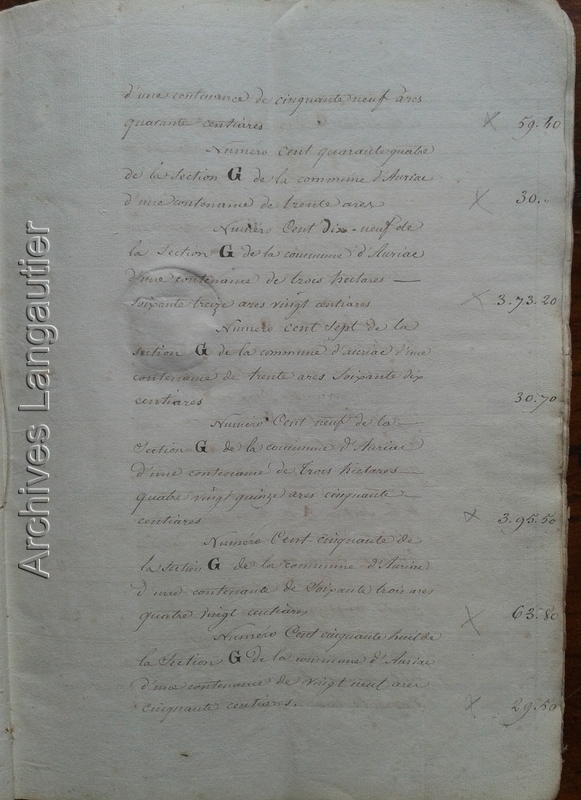 d'une contenance de cinquante neuf ares
quarante centiares × 59.40
Numero Cent quarante quatre
de la Section G de la commune d'Auriac
d'une contenance de trente ares × 30..
Numero Cent Dix-neuf de
la Section G de la commune d'Auriac
d'une contenance de trois hectares —
Soixante treize ares vingt centiares × 3.73.20
Numero Cent Sept de la
Section G de la commune d'auriac d'une
contenance de trente ares Soixante dix
centiares 30.70
Numero Cent neuf de la —
Section G de la commune d'Auriac
d'une contenance de trois hectares —
quatre vingt quinze ares cinquante —
centiares × 3.95.50
Numero Cent-cinquante de
la Section G de la commune d'Auriac
d'une contenante de Soixante trois ares
quatre vingt centiares × 63.80
Numero Cent cinquante huit de
la Section G de la commune d'Auriac
d'une contenance de vingt neuf ares
cinquante centiares. × 29.50
Archives Langautier